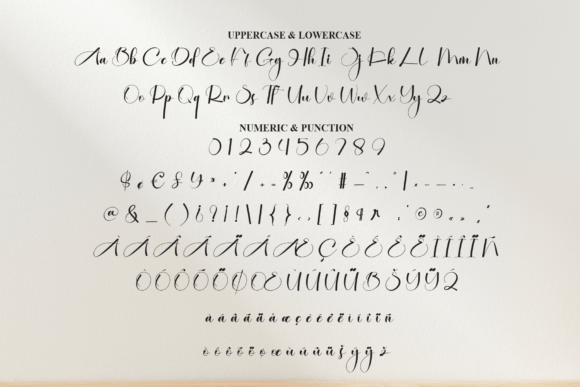 UPPERCASE & LOWERCASE
Aa Bb Cc Dd Ee Ff Gg Hh Ii Jj Kk Ll Mm Nn
Oo Pp Qq Rr Ss Tt Uu Vv Ww Xx Yy Zz
NUMERIC & PUNCTION
0 1 2 3 4 5 6 7 8 9
$ ¢ € £ ¥ / % ‰ # |
@ & _ ( ) ¿ ? ¡ ! \ | { } . , [ ] § © ®
À Á Â Ã Ä Å Æ Ç È É Ê Ë Ì Í Î Ï Ñ
Ò Ó Ô Õ Ö Ø Œ Ù Ú Û Ü ß Š Ý Ÿ Ž
à á â ã ä å æ ç è é ê ë ì í î ï ñ
ò ó ô õ ö ø œ ù ú û ü š ý ÿ ž